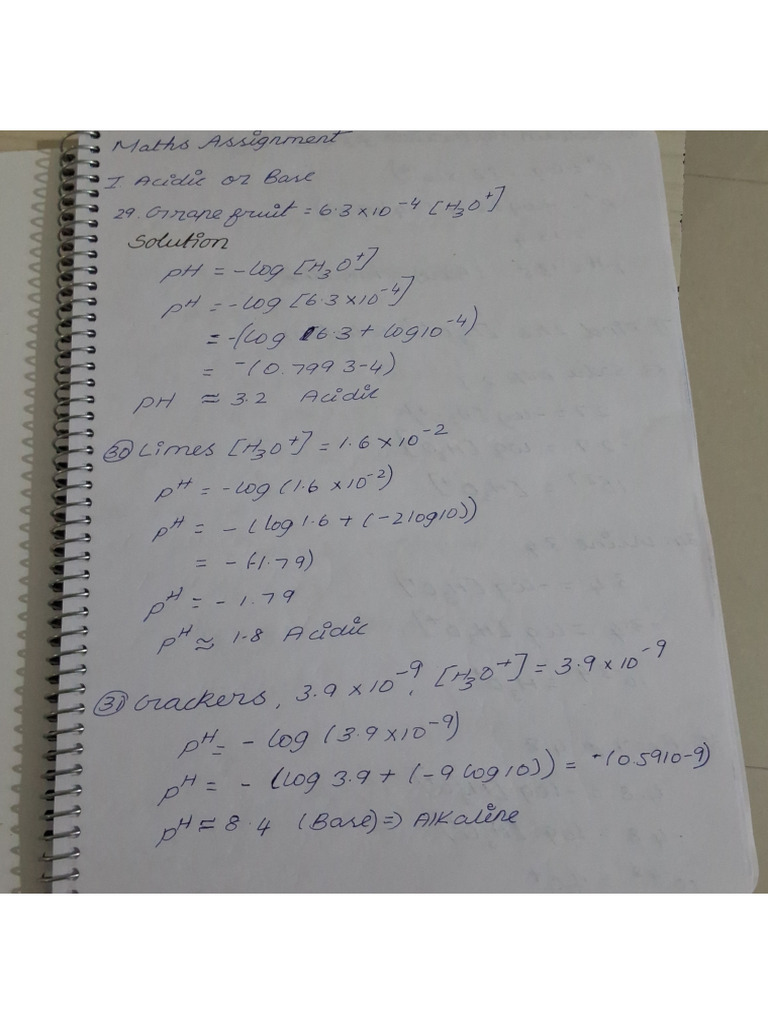 Maths Assignment
I. Acidic or Base
29. Grape fruit = 6.3 × 10⁻⁴ [H₃O⁺]
Solution
pH = -log [H₃O⁺]
pH = -log [6.3 × 10⁻⁴]
= -(log 6.3 + log 10⁻⁴)
= -(0.7993-4)
pH ≈ 3.2 Acidic
30 Limes [H₃O⁺] = 1.6 × 10⁻²
pH = -log (1.6 × 10⁻²)
pH = - (log 1.6 + (-2 log 10))
= - (-1.79)
pH = - 1.79
pH ≈ 1.8 Acidic
31 Crackers, 3.9 × 10⁻⁹, [H₃O⁺] = 3.9 × 10⁻⁹
pH = - log (3.9 × 10⁻⁹)
pH = - (log 3.9 + (-9 log 10)) = -(0.5910-9)
pH ≈ 8.4 (Base) => Alkaline